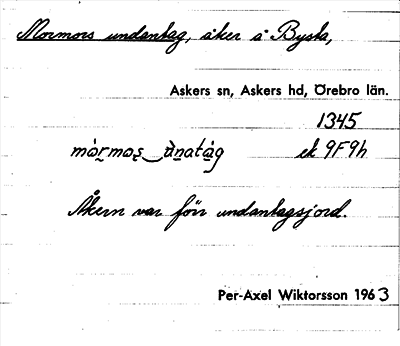 Mormors undantag, åker å Bysta,
Askers sn, Askers hd, Örebro län.
1345
mòrmos̠ ùnatág ek 9F9h
Åkern var förr undantagsjord.
Per-Axel Wiktorsson 1963